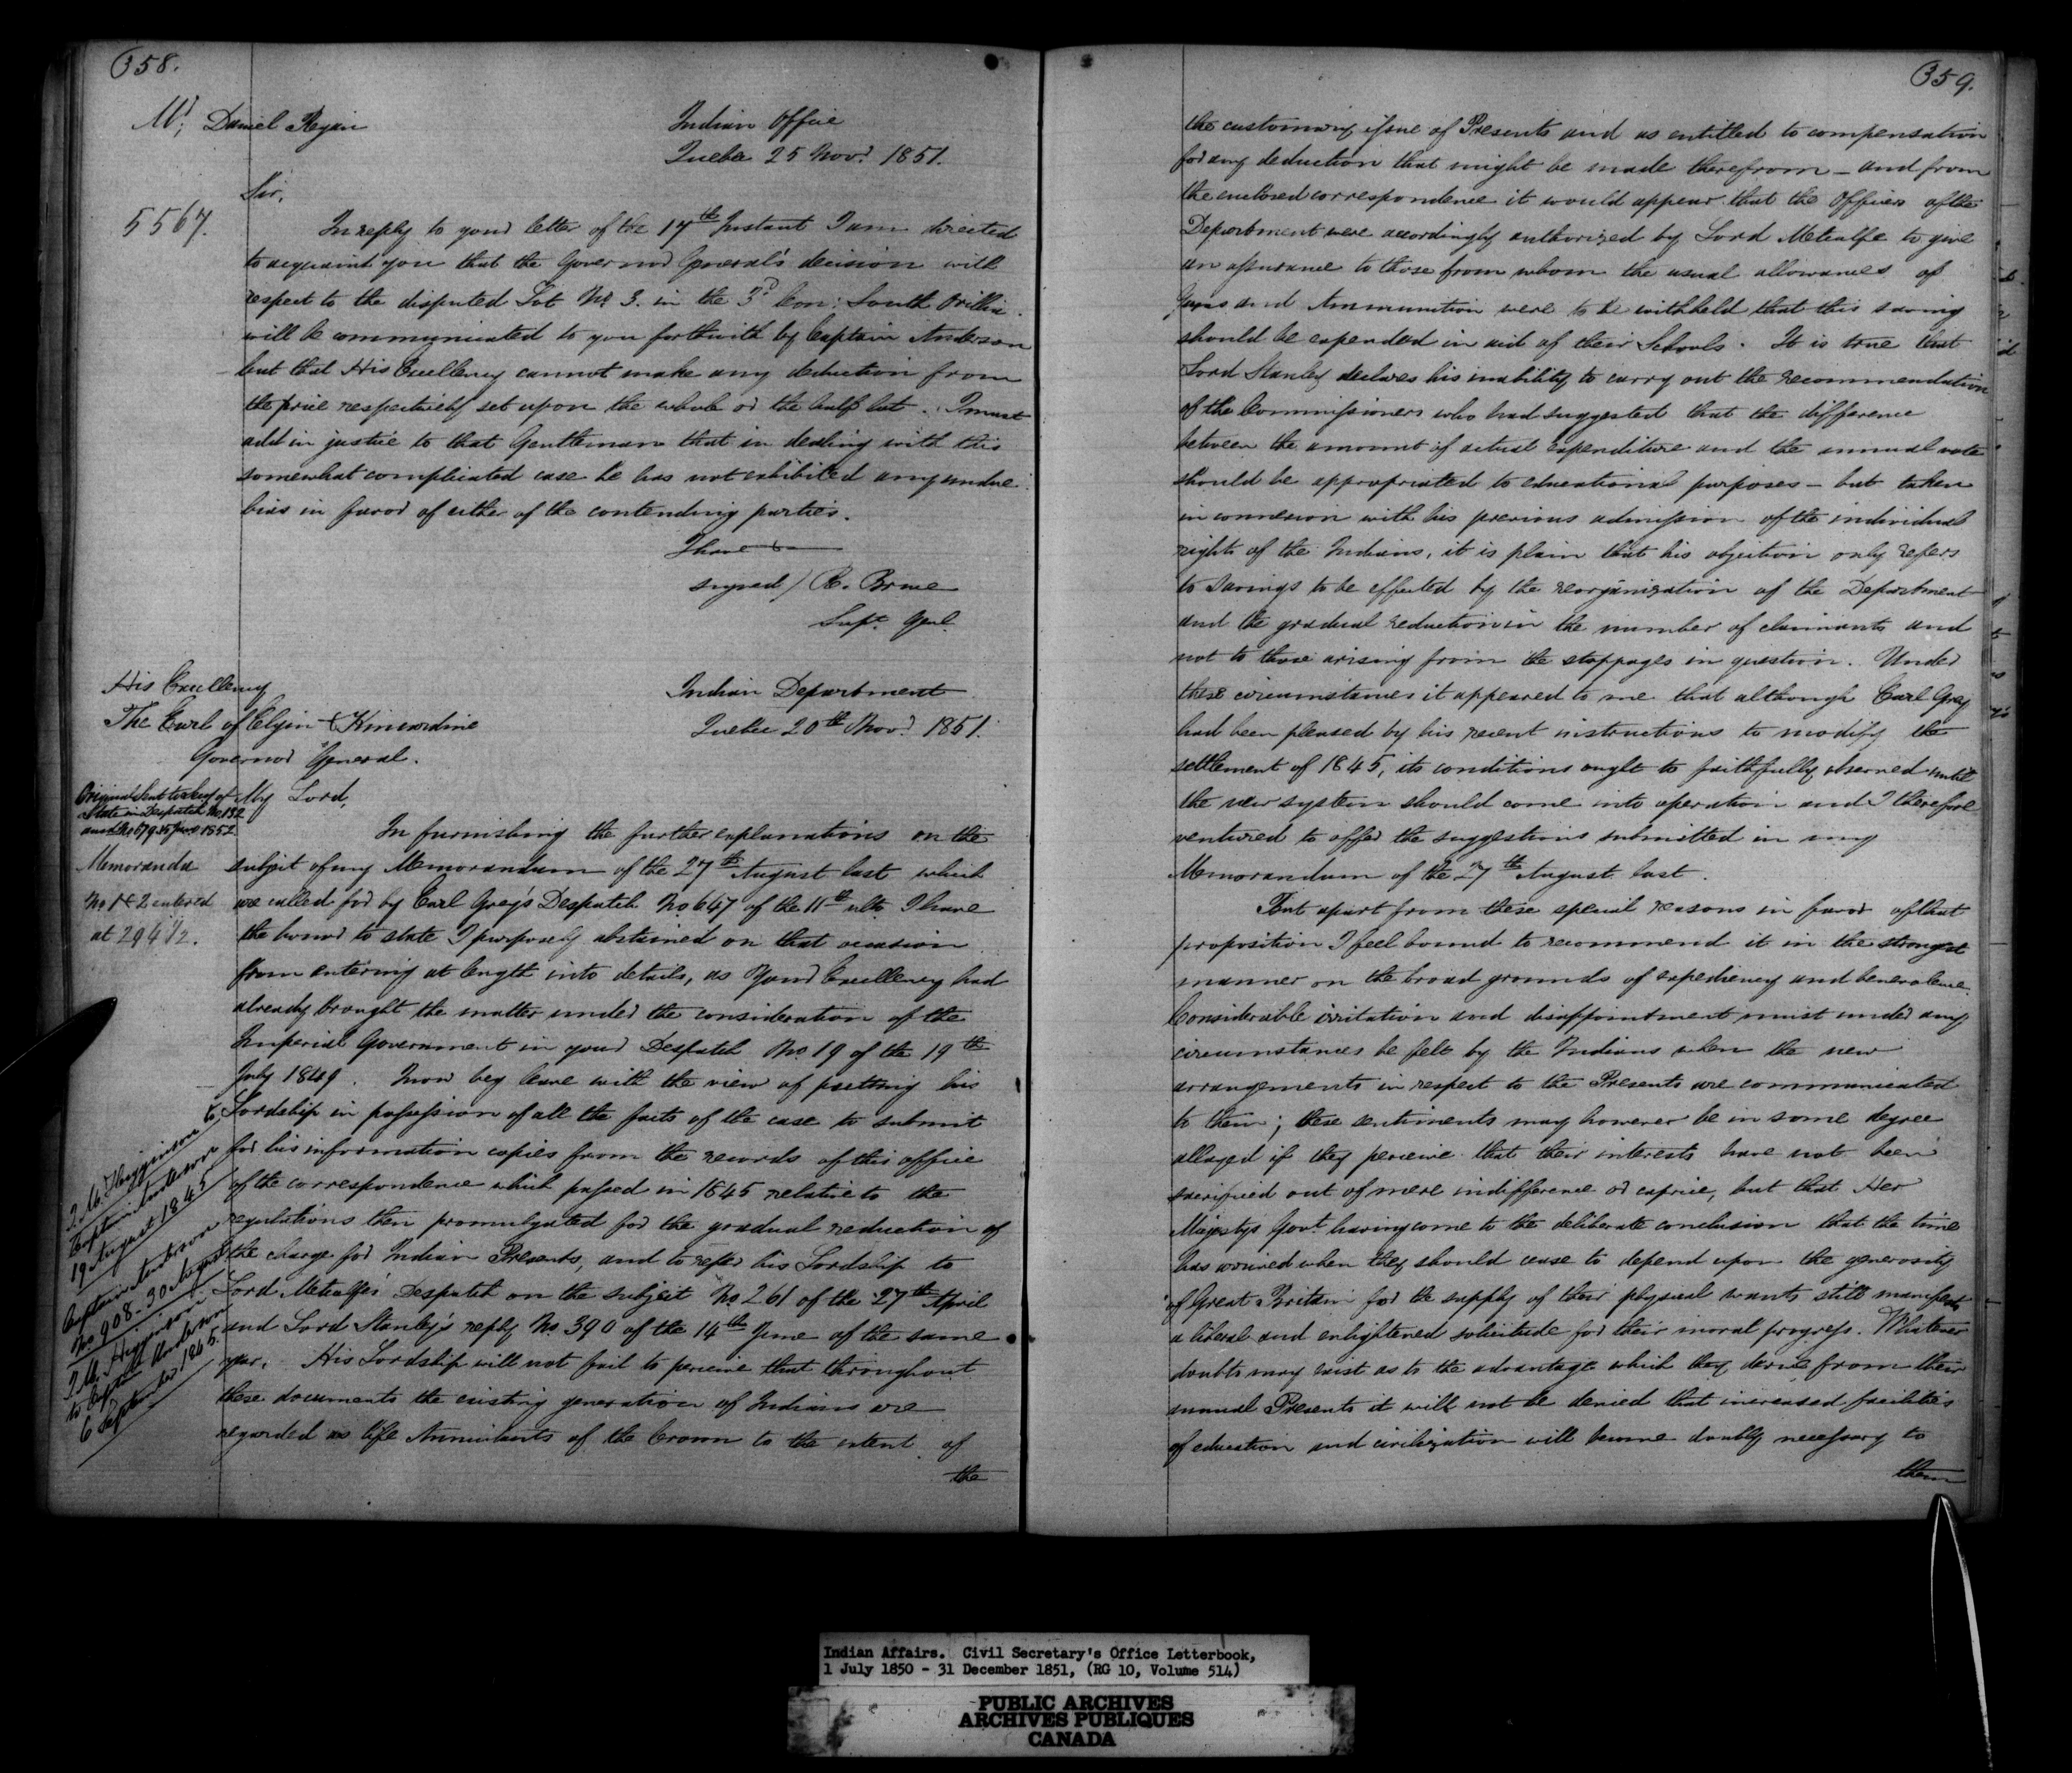 358.
Mr. Daniel Regan
Indian Office
Quebec 25 Novr. 1851.
Sir,
5567.
In reply to your letter of the 17th Instant I am directed
to acquaint you that the Governor General's decision with
respect to the disputed Lot No. 3. in the 3d Con: South Orillia
will be communicated to you forthwith by Captain Anderson
but that His Excellency cannot make any deduction from
the price respectively set upon the whole or the half lot. I must
add in justice to that Gentleman that in dealing with this
somewhat complicated case he has not exhibited any undue
bias in favor of either of the contending parties.
I have &
signed / R. Bruce
Supt. Genl.
His Excellency
The Earl of Elgin & Kincardine
Governor General.
Indian Department
Quebec 20th Novr. 1851.
Original sent to Secy of
State in Despatch No. 132
and No 67 9 25 June 1852
Memoranda
No 1 & 2 entered
at 294 1/2.
My Lord,
In furnishing the further explanations on the
subject of my Memorandum of the 27th August last which
are called for by Earl Grey's Despatch No. 647 of the 11th ulto I have
the honor to state I purposely abstained on that occasion
from entering at length into details, as Your Excellency had
already brought the matter under the consideration of the
Imperial Government in your Despatch No. 19 of the 19th
July 1849. I now beg leave with the view of putting his
Lordship in possession of all the facts of the case to submit
for his information copies from the records of this office
of the correspondence which passed in 1845 relative to the
regulations then promulgated for the gradual reduction of
the charge for Indian Presents, and to refer his Lordship to
Lord Metcalfe's Despatch on the subject No. 261 of the 27th April
and Lord Stanley's reply No. 390 of the 14th June of the same
year. His Lordship will not fail to perceive that throughout
these documents the existing generation of Indians are
regarded as life Annuitants of the Crown to the extent of
the
J. M. Higginson to
Captain Anderson
19 August 1845
Captain Anderson
No. 908 - 30 August
J. M. Higginson
to Captn Anderson
6 September 1845.
359.
the customary issue of Presents and as entitled to compensation
for any deduction that might be made therefrom - and from
the enclosed correspondence it would appear that the Officers of the
Department were accordingly authorized by Lord Metcalfe to give
an assurance to those from whom the usual allowances of
Guns and Ammunition were to be withheld that this saving
should be expended in aid of their Schools. It is true that
Lord Stanley declares his inability to carry out the recommendation
of the Commissioners who had suggested that the difference
between the amount of actual expenditure and the annual vote
should be appropriated to educational purposes - but taken
in connexion with his previous admission of the individual
rights of the Indians, it is plain that his objection only refers
to savings to be effected by the reorganization of the Department
and the gradual reduction in the number of claimants and
not to those arising from the stoppages in question. Under
these circumstances it appeared to me that although Earl Grey
had been pleased by his recent instructions to modify the
settlement of 1845, its conditions ought to faithfully observed until
the new system should come into operation and I therefore
ventured to offer the suggestions submitted in my
Memorandum of the 27th August last.
But apart from these special reasons in favor of that
proposition I feel bound to recommend it in the strongest
manner on the broad grounds of expediency and benevolence.
Considerable irritation and disappointment must under any
circumstances be felt by the Indians when the new
arrangements in respect to the Presents are communicated
to them; these sentiments may however be in some degree
allayed if they perceive that their interests have not been
sacrificed out of mere indifference or caprice, but that Her
Majesty's Govt. having come to the deliberate conclusion that the time
has arrived when they should cease to depend upon the generosity
of Great Britain for the supply of their physical wants still manifests
a liberal and enlightened solicitude for their moral progress. Whatever
doubts may exist as to the advantage which they derive from their
annual Presents it will not be denied that increased facilities
of education and civilization will become doubly necessary to
them
Indian Affairs. Civil Secretary's Office Letterbook,
1 July 1850 - 31 December 1851, (RG 10, Volume 514)
PUBLIC ARCHIVES
ARCHIVES PUBLIQUES
CANADA